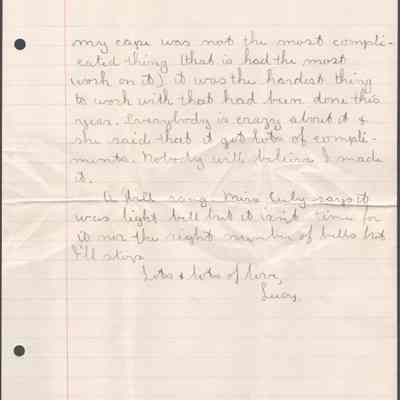 my cape was not the most compli-
cated thing (that is had the most
work on it) it was the hardest thing
to work with that had been done this
year. Everybody is crazy about it &
she said that it got lots of compli-
ments. Nobody will believe I made
it.
A bell rang. Miss says it
was light bell but it isn't time for
it nor the right number of bells but
I'll stop
Lots & lots of love,
Lucy.